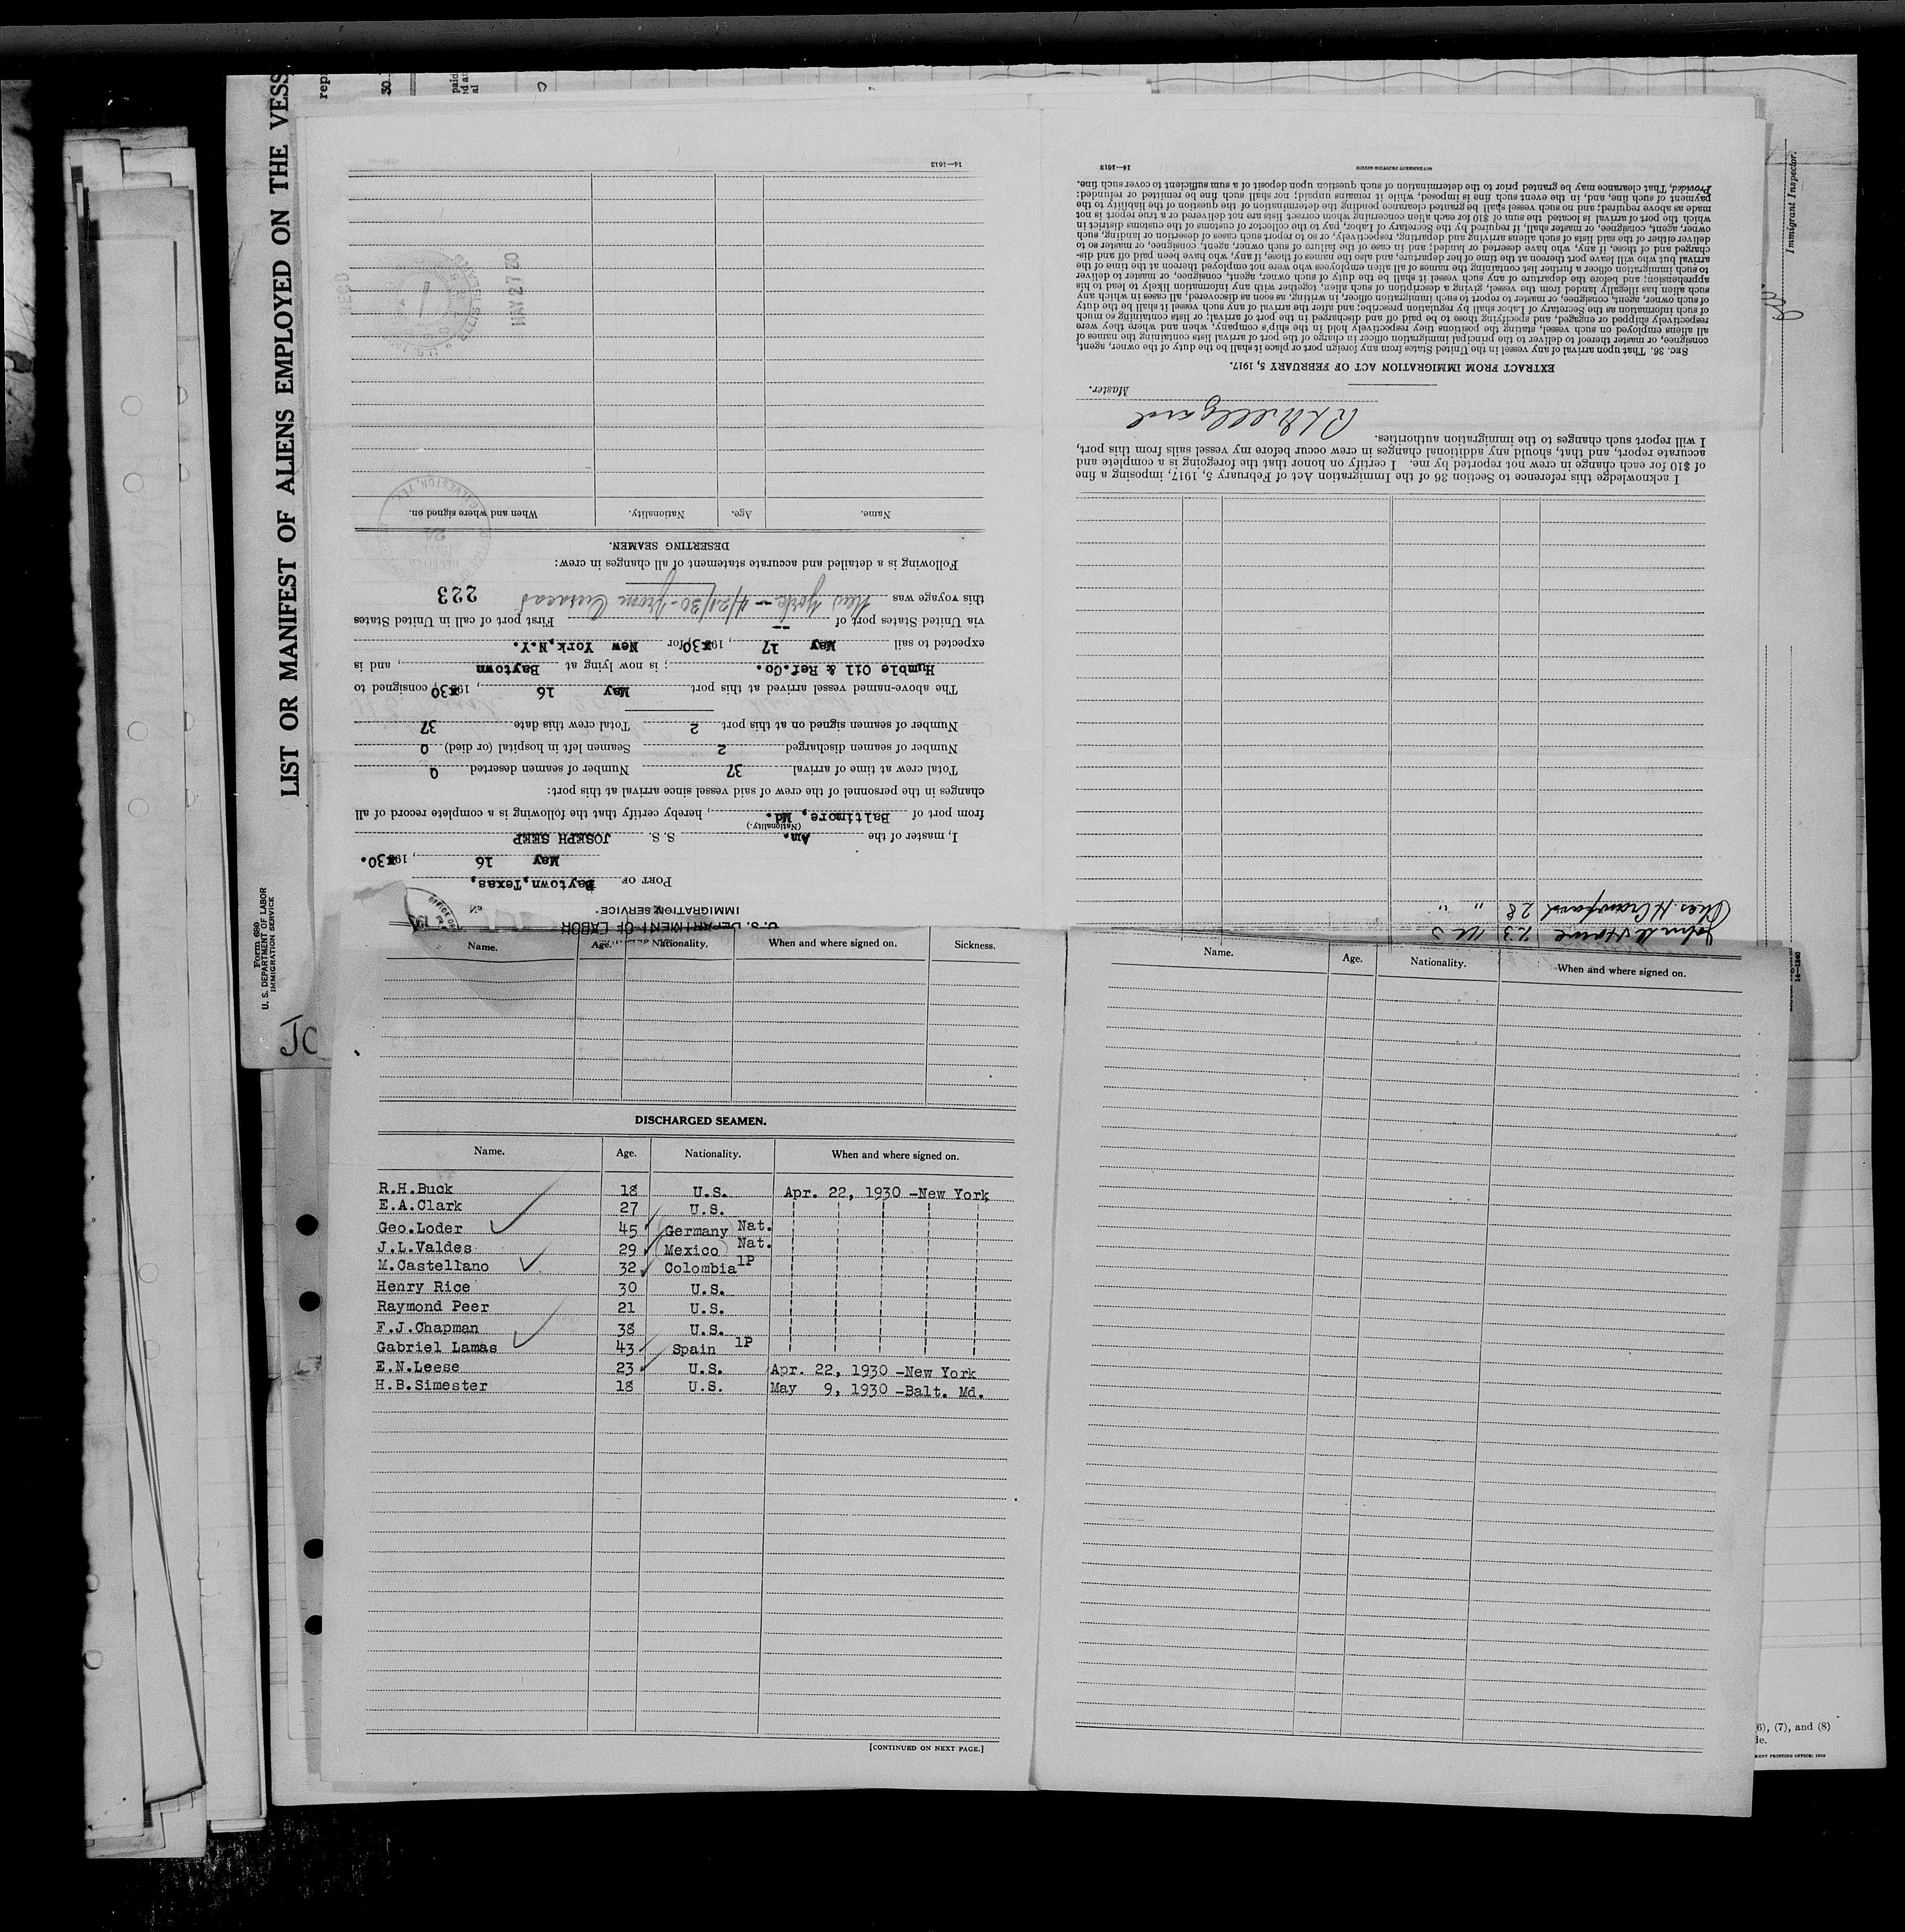 LIST OR MANIFEST OF ALIENS EMPLOYED ON THE VESS
Form 680
U. S. DEPARTMENT OF LABOR
IMMIGRATION SERVICE
JO
rep
30
paid
ed at
al
Immigrant Inspector.
14—1240
U. S. DEPARTMENT OF LABOR
IMMIGRATION SERVICE
PORT OF Baytown, Texas,
May 16, 1930.
I, master of the Am. S. S. JOSEPH SEEP
(Nationality.)
from port of Baltimore, Md., hereby certify that the following is a complete record of all
changes in the personnel of the crew of said vessel since arrival at this port:
Total crew at time of arrival 37 Number of seamen deserted 0
Number of seamen discharged 2 Seamen left in hospital (or died) 0
Number of seamen signed on at this port 2 Total crew this date 37
The above-named vessel arrived at this port May 16, 1930, consigned to
Humble Oil & Ref.Co.; is now lying at Baytown, and is
expected to sail May 17, 1930, for New York, N.Y.
via United States port of -- First port of call in United States
this voyage was New York - 4/21/30 - from Curacao 223
Following is a detailed and accurate statement of all changes in crew:
DESERTING SEAMEN.
Name. Age. Nationality. When and where signed on.
RECEIVED
MAY
24
GALVESTON, TEX.
MAY 27 30
REC'D
ELLIS ISLAND
14—1613
John Howe 23 U S
Chas. H Crawford 28 " "
I acknowledge this reference to Section 36 of the Immigration Act of February 5, 1917, imposing a fine
of $10 for each change in crew not reported by me. I certify on honor that the foregoing is a complete and
accurate report, and that, should any additional changes in crew occur before my vessel sails from this port,
I will report such changes to the immigration authorities.
Master.
EXTRACT FROM IMMIGRATION ACT OF FEBRUARY 5, 1917.
SEC. 36. That upon arrival of any vessel in the United States from any foreign port or place it shall be the duty of the owner, agent,
consignee, or master thereof to deliver to the principal immigration officer in charge of the port of arrival lists containing the names of
all aliens employed on such vessel, stating the positions they respectively hold in the ship's company, when and where they were
respectively shipped or engaged, and specifying those to be paid off and discharged in the port of arrival; or lists containing so much
of such information as the Secretary of Labor shall by regulation prescribe; and after the arrival of any such vessel it shall be the duty
of such owner, agent, consignee, or master to report to such immigration officer, in writing, as soon as discovered, all cases in which any
such alien has illegally landed from the vessel, giving a description of such alien, together with any information likely to lead to his
apprehension; and before the departure of any such vessel it shall be the duty of such owner, agent, consignee, or master to deliver
to such immigration officer a further list containing the names of all alien employees who were not employed thereon at the time of the
arrival but who will leave port thereon at the time of her departure, and also the names of those, if any, who have been paid off and dis-
charged and of those, if any, who have deserted or landed; and in case of the failure of such owner, agent, consignee, or master so to
deliver either of the said lists of such aliens arriving and departing, respectively, or so to report such cases of desertion or landing, such
owner, agent, consignee, or master shall, if required by the Secretary of Labor, pay to the collector of customs of the customs district in
which the port of arrival is located the sum of $10 for each alien concerning whom correct lists are not delivered or a true report is not
made as above required; and no such vessel shall be granted clearance pending the determination of the question of the liability to the
payment of such fine, and, in the event such fine is imposed, while it remains unpaid; nor shall such fine be remitted or refunded:
Provided, That clearance may be granted prior to the determination of such question upon deposit of a sum sufficient to cover such fine.
14—1613 GOVERNMENT PRINTING OFFICE
Name. Age. Nationality. When and where signed on. Sickness.
DISCHARGED SEAMEN.
Name. Age. Nationality. When and where signed on.
R.H.Buck 18 U.S. Apr. 22, 1930 -New York
E.A.Clark 27 U.S.
Geo.Loder 45 Germany Nat.
J.L.Valdes 29 Mexico Nat.
M.Castellano 32 Colombia 1P
Henry Rice 30 U.S.
Raymond Peer 21 U.S.
F.J.Chapman 38 U.S.
Gabriel Lamas 43 Spain 1P
E.N.Leese 23 U.S. Apr. 22, 1930 -New York
H.B.Simester 18 U.S. May 9, 1930 -Balt. Md.
[CONTINUED ON NEXT PAGE.]
Name. Age. Nationality. When and where signed on.
(6), (7), and (8)
de.
MENT PRINTING OFFICE: 1929